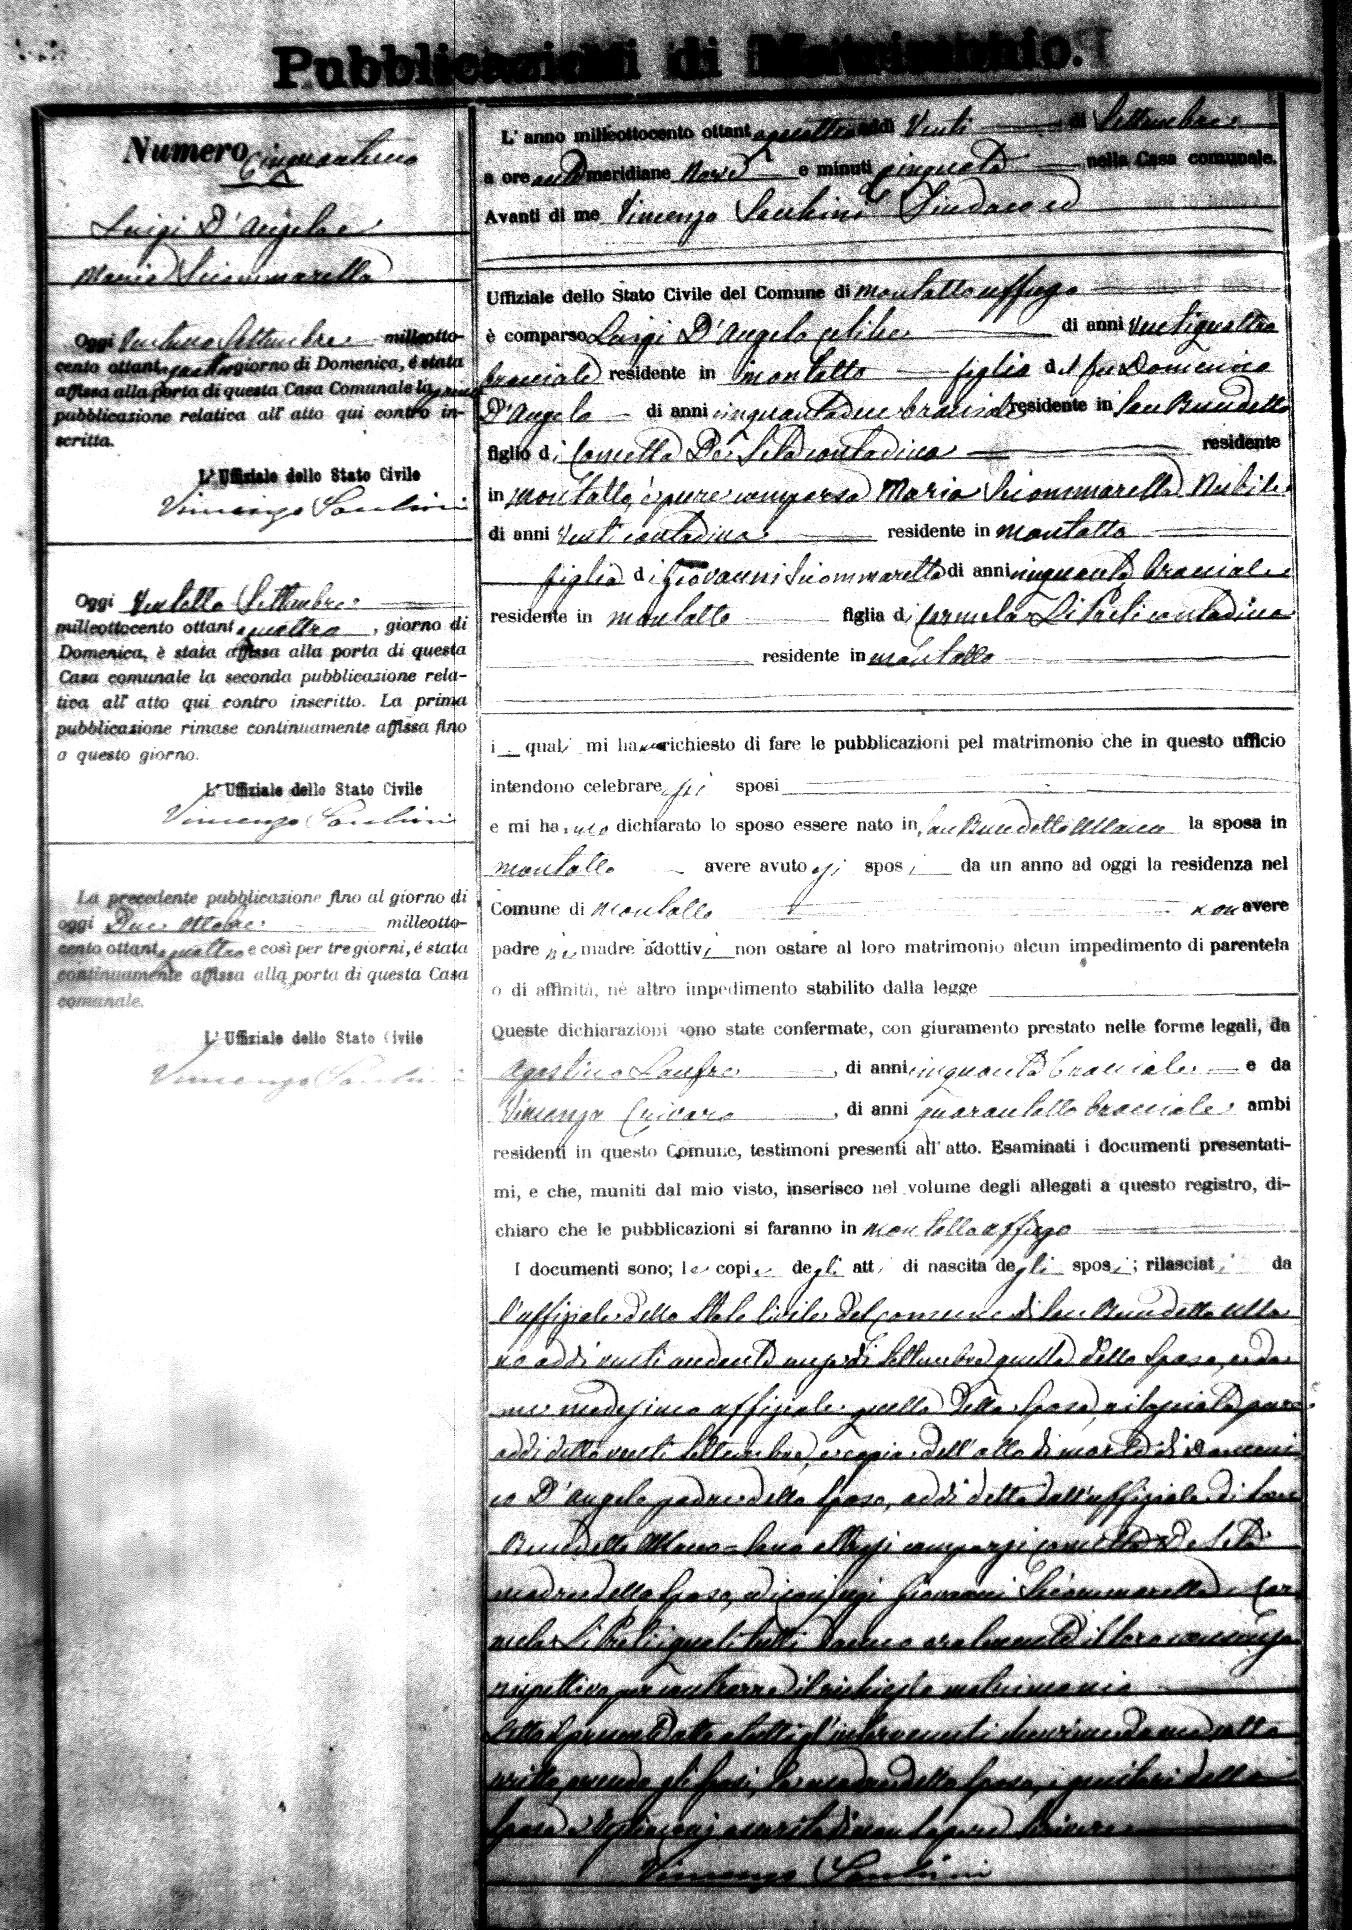 Pubblicazioni di Matrimonio.
Numero Cinquantuno
Luigi D'Angelo e
Maria Sciommarella
Oggi Ventuno Settembre milleotto-
cento ottantaquattro giorno di Domenica, è stata
affissa alla porta di questa Casa Comunale la prima
pubblicazione relativa all' atto qui contro in-
scritta.
L'Uffiziale dello Stato Civile
Vincenzo
Oggi Ventotto Settembre
milleottocento ottantaquattro, giorno di
Domenica, è stata affissa alla porta di questa
Casa comunale la seconda pubblicazione rela-
tiva all' atto qui contro inscritto. La prima
pubblicazione rimase continuamente affissa fino
a questo giorno.
L'Uffiziale dello Stato Civile
Vincenzo
La precedente pubblicazione fino al giorno di
oggi Due Ottobre milleotto-
cento ottantaquattro e così per tre giorni, é stata
continuamente affissa alla porta di questa Casa
comunale.
L'Uffiziale dello Stato Civile
Vincenzo
L' anno milleottocento ottantaquattro addì Venti di Settembre
a ore antimeridiane Nove e minuti cinquanta nella Casa comunale.
Avanti di me Vincenzo Sindaco ed
Uffiziale dello Stato Civile del Comune di Montalto uffugo
è comparso Luigi D'Angelo celibe di anni Ventiquattro
bracciale residente in Montalto figlio del fu Domenico
D'Angelo di anni cinquantadue bracciale residente in San Benedetto
figlio di contadina residente
in Montalto, è pure comparsa Maria Sciommarella Nubile
di anni Venti contadina residente in Montalto
figlia di Giovanni Sciommarella di anni cinquanta bracciale
residente in Montalto figlia di Carmela Li Preti contadina
residente in Montalto
i quali mi hanno richiesto di fare le pubblicazioni pel matrimonio che in questo ufficio
intendono celebrare essi sposi
e mi hanno dichiarato lo sposo essere nato in San Benedetto Ullano la sposa in
Montalto avere avuto essi sposi da un anno ad oggi la residenza nel
Comune di Montalto non avere
padre nè madre adottivi non ostare al loro matrimonio alcun impedimento di parentela
o di affinità, nè altro impedimento stabilito dalla legge
Queste dichiarazioni sono state confermate, con giuramento prestato nelle forme legali, da
Agostino, di anni cinquanta bracciale e da
Vincenzo Crivaro, di anni quarantotto bracciale ambi
residenti in questo Comune, testimoni presenti all' atto. Esaminati i documenti presentati-
mi, e che, muniti dal mio visto, inserisco nel volume degli allegati a questo registro, di-
chiaro che le pubblicazioni si faranno in Montalto uffugo
I documenti sono; le copie degli atti di nascita degli sposi; rilasciati da
l'uffiziale dello Stato Civile del comune di San Benedetto Ulla
no addì venti andante mese di Settembre quella dello sposo, e da
me medesimo uffiziale quella della sposa, rilasciata pure
addì detto venti Settembre, e copia dell'atto di morte di Domeni
co D'Angelo padre dello sposo, addì detto dall'uffiziale di San
Benedetto Ullano = Sono altresì comparsi
madre dello sposo, ed i coniugi Giovanni Sciommarella e Car
mela Li Preti i quali tutti danno oralmente il loro consenso
rispettivo per contrarre il richiesto matrimonio
Letto il presente atto a tutti gl'intervenuti da me sotto
scritto, avendo gli sposi, la madre dello sposo, i genitori della
sposa e testimoni asserito di non sapere scrivere
Vincenzo